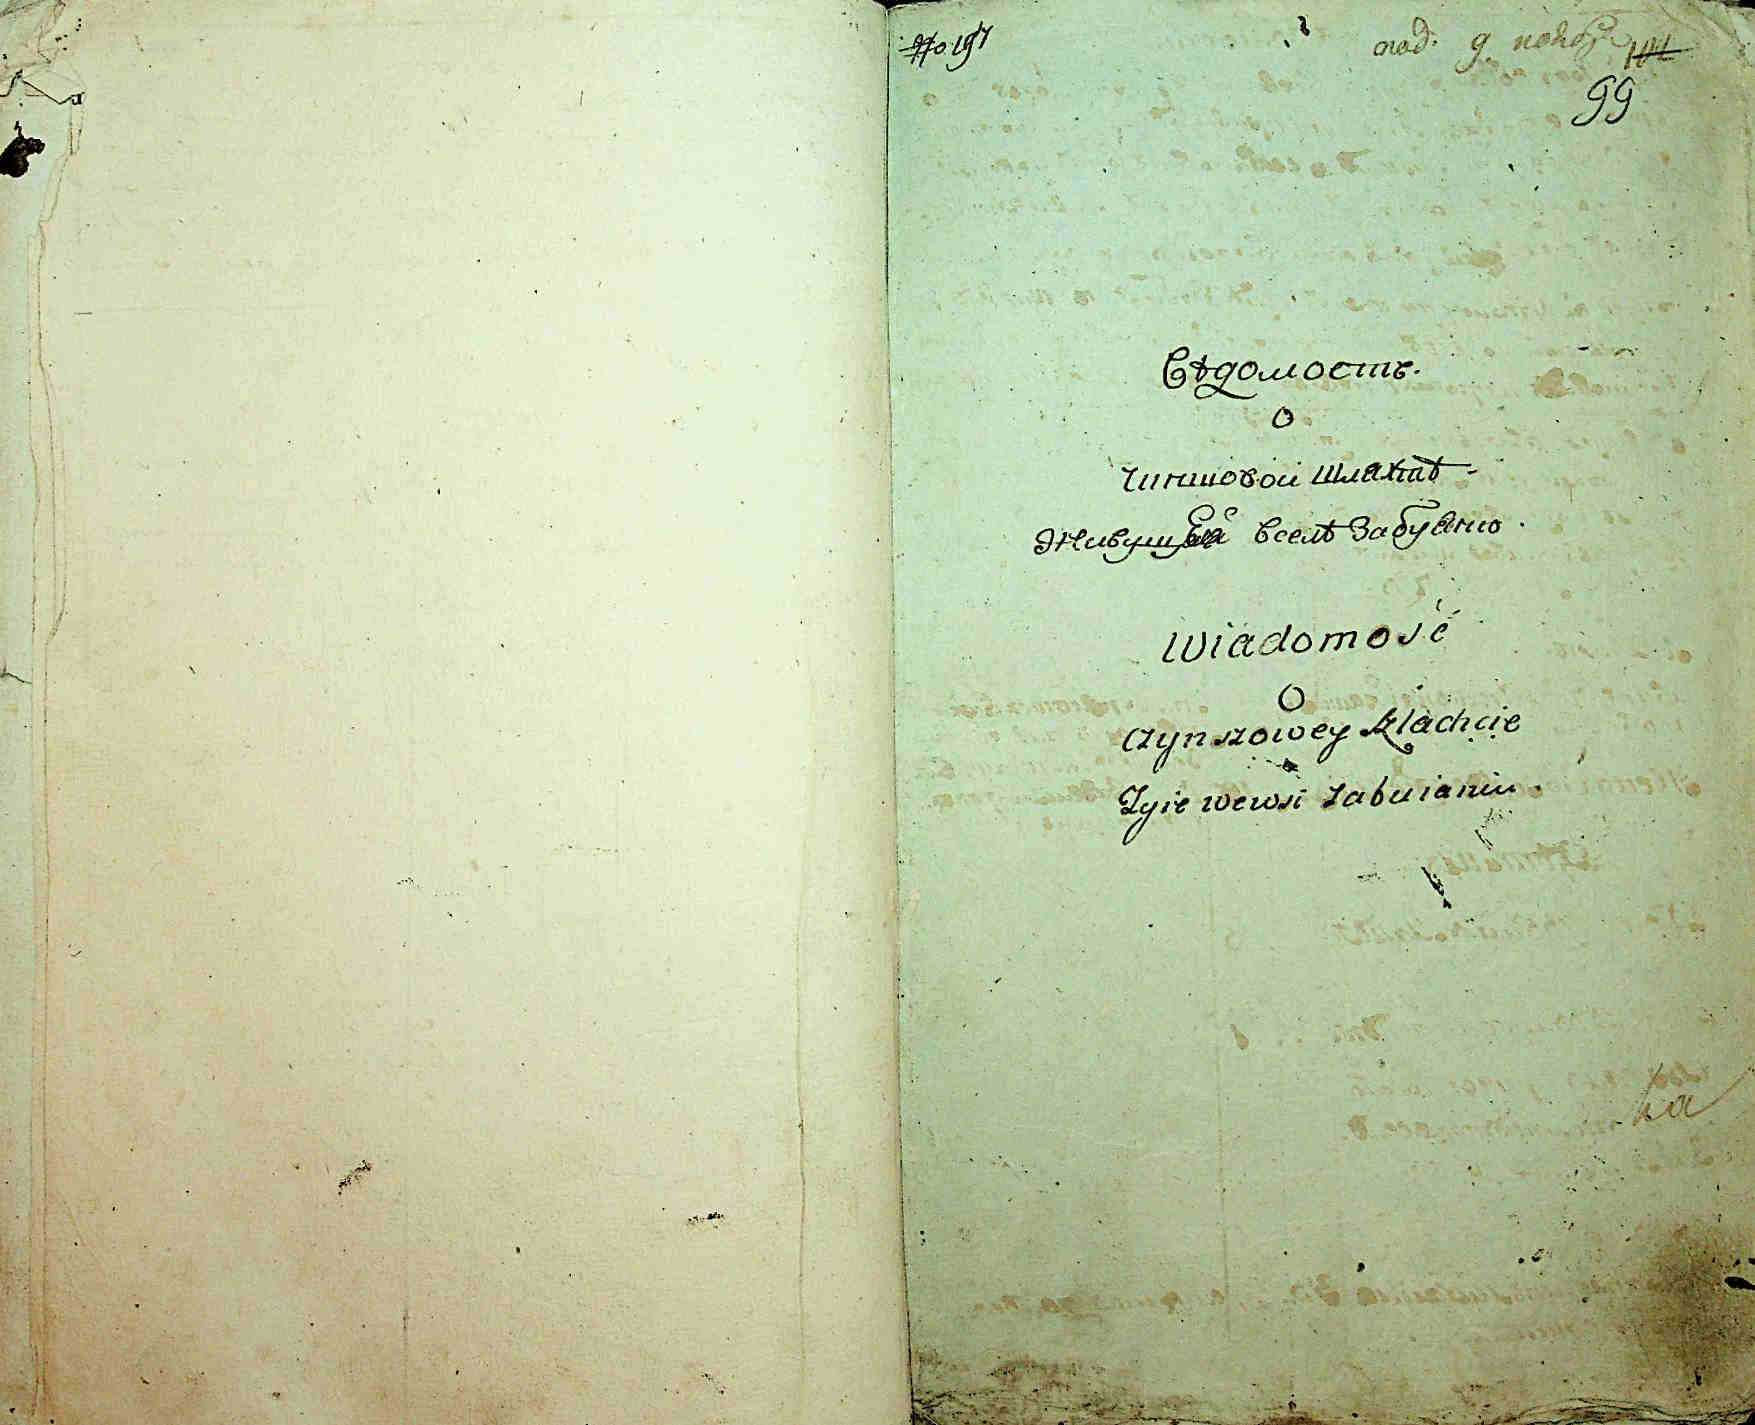 № 197
под. 9 нояб
101
99
Вѣдомость.
о
чиншовой шляхтѣ
живущей вселѣ Забуяню.
Wiadomość
O
czynszowey szlachcie
Zyie wewsi Zabuianiu.